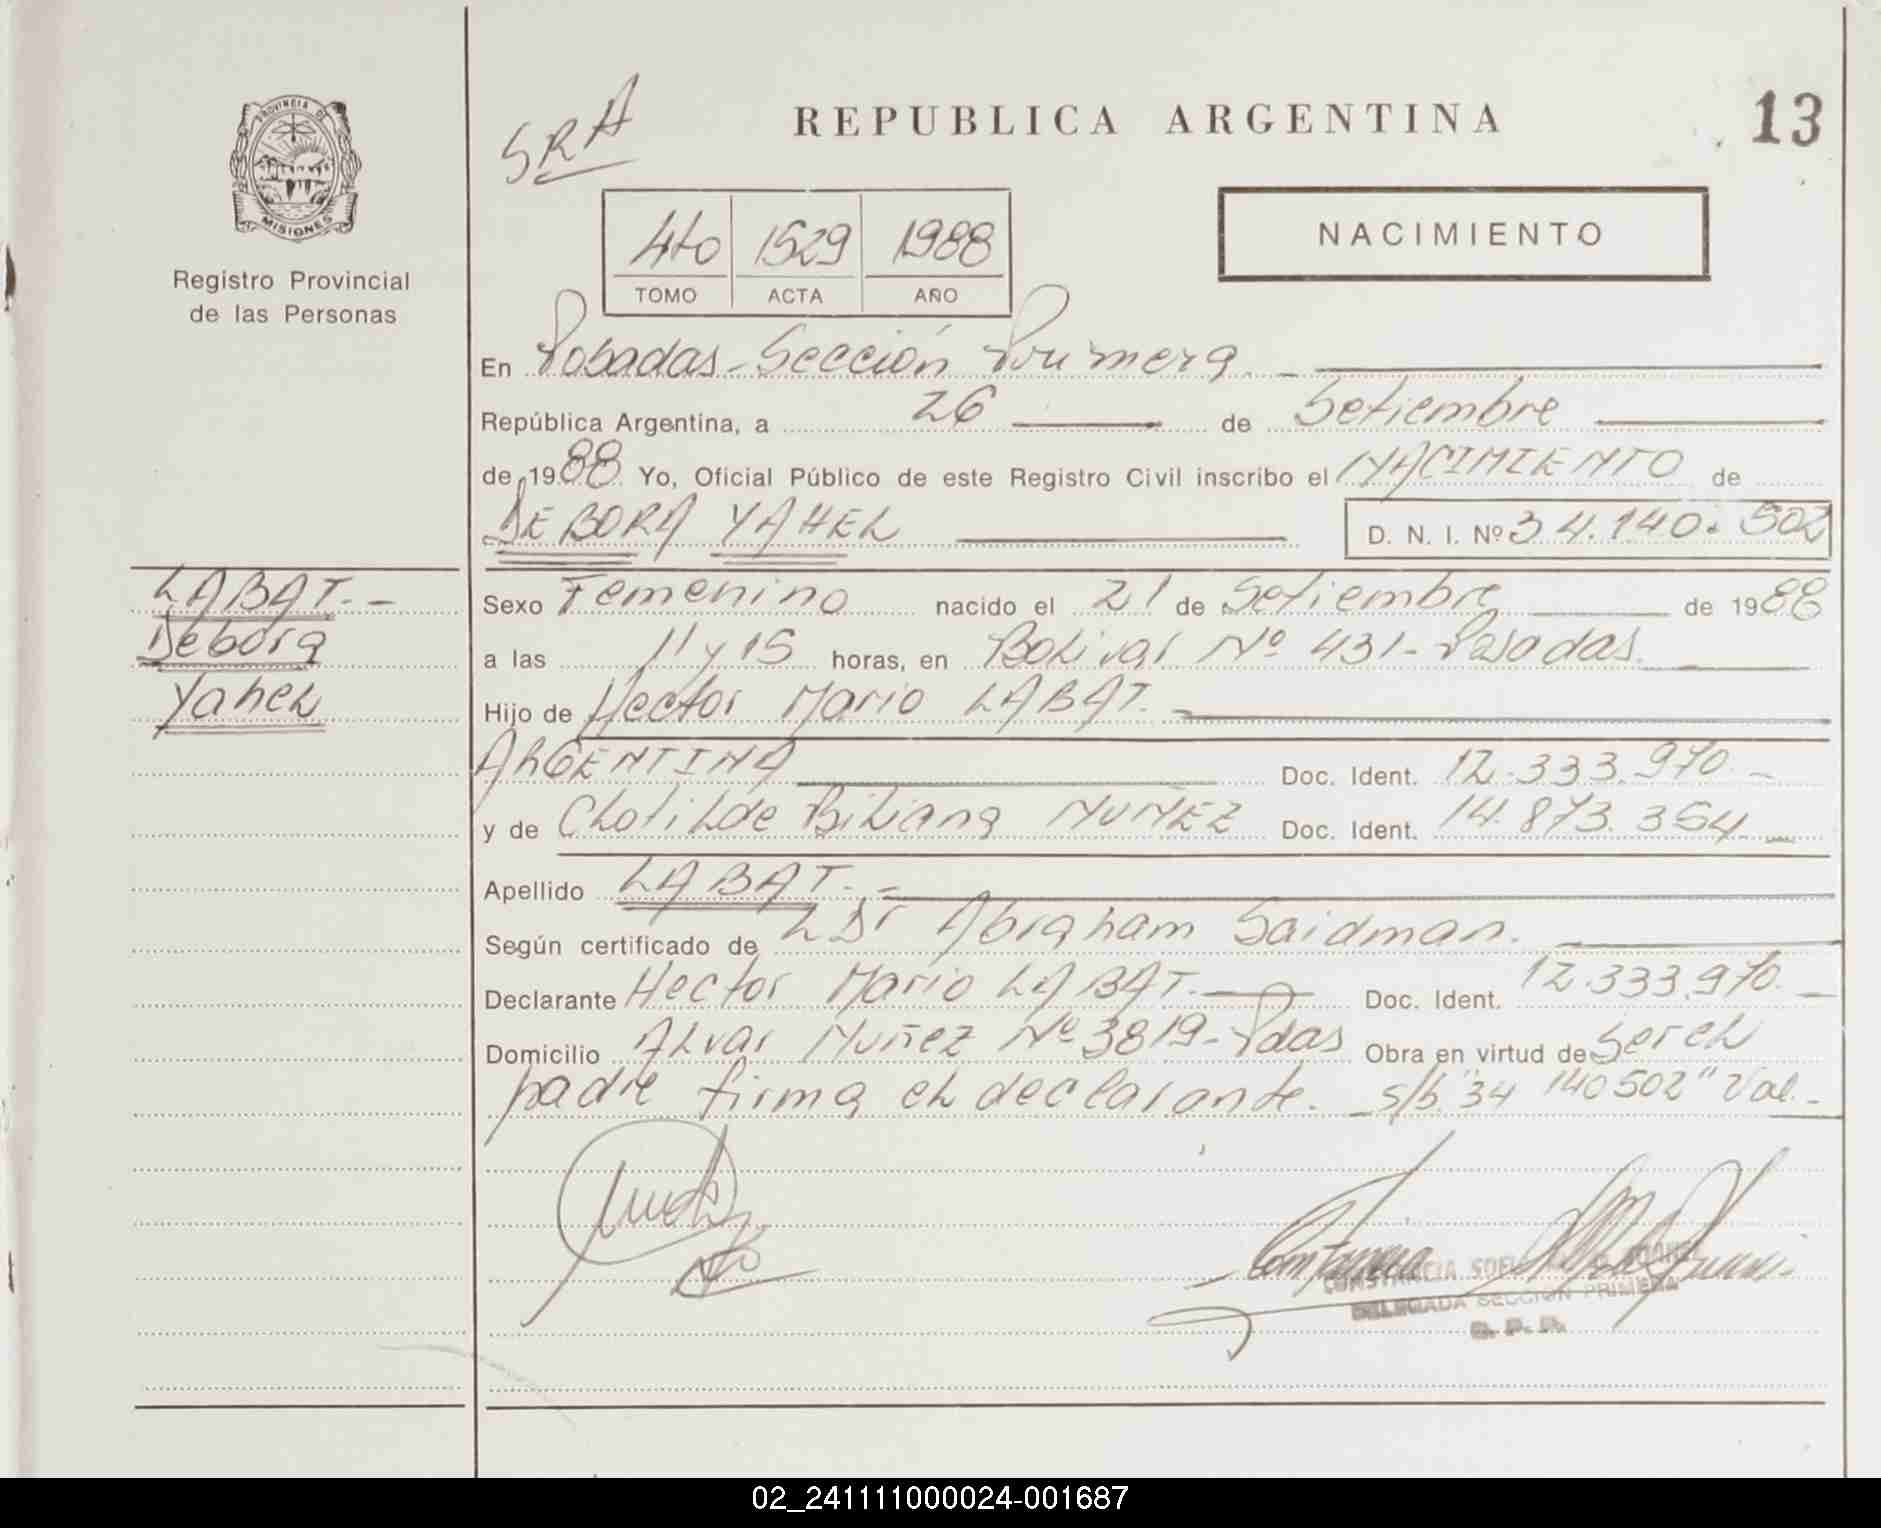 PROVINCIA DE
MISIONES
Registro Provincial
de las Personas
SRA
REPUBLICA ARGENTINA
13
4to 1529 1988
TOMO ACTA AÑO
NACIMIENTO
En Posadas - Sección Primera.
República Argentina, a 26 de Setiembre
de 1988 Yo, Oficial Público de este Registro Civil inscribo el NACIMIENTO de
DEBORA YAHEL D. N. I. Nº 34.140.502
LABAT.-
Debora
Yahel
Sexo Femenino nacido el 21 de Setiembre de 1988
a las 11 y 15 horas, en Bolivar Nº 431 - Posadas.
Hijo de Hector Mario LABAT.
ARGENTINA Doc. Ident. 12.333.970.-
y de Clotilde Bibiana MUÑEZ Doc. Ident. 14.873.354.-
Apellido LABAT.-
Según certificado de Dr Abraham Saidman.
Declarante Hector Mario LABAT. Doc. Ident. 12.333.970.
Domicilio Alvar Muñez Nº 3819 - Pdas Obra en virtud de Ser el
padre firma el declarante. s/b "34 140 502" Val.-
CONSTANCIA
DELEGADA SECCION PRIMERA
02_241111000024-001687